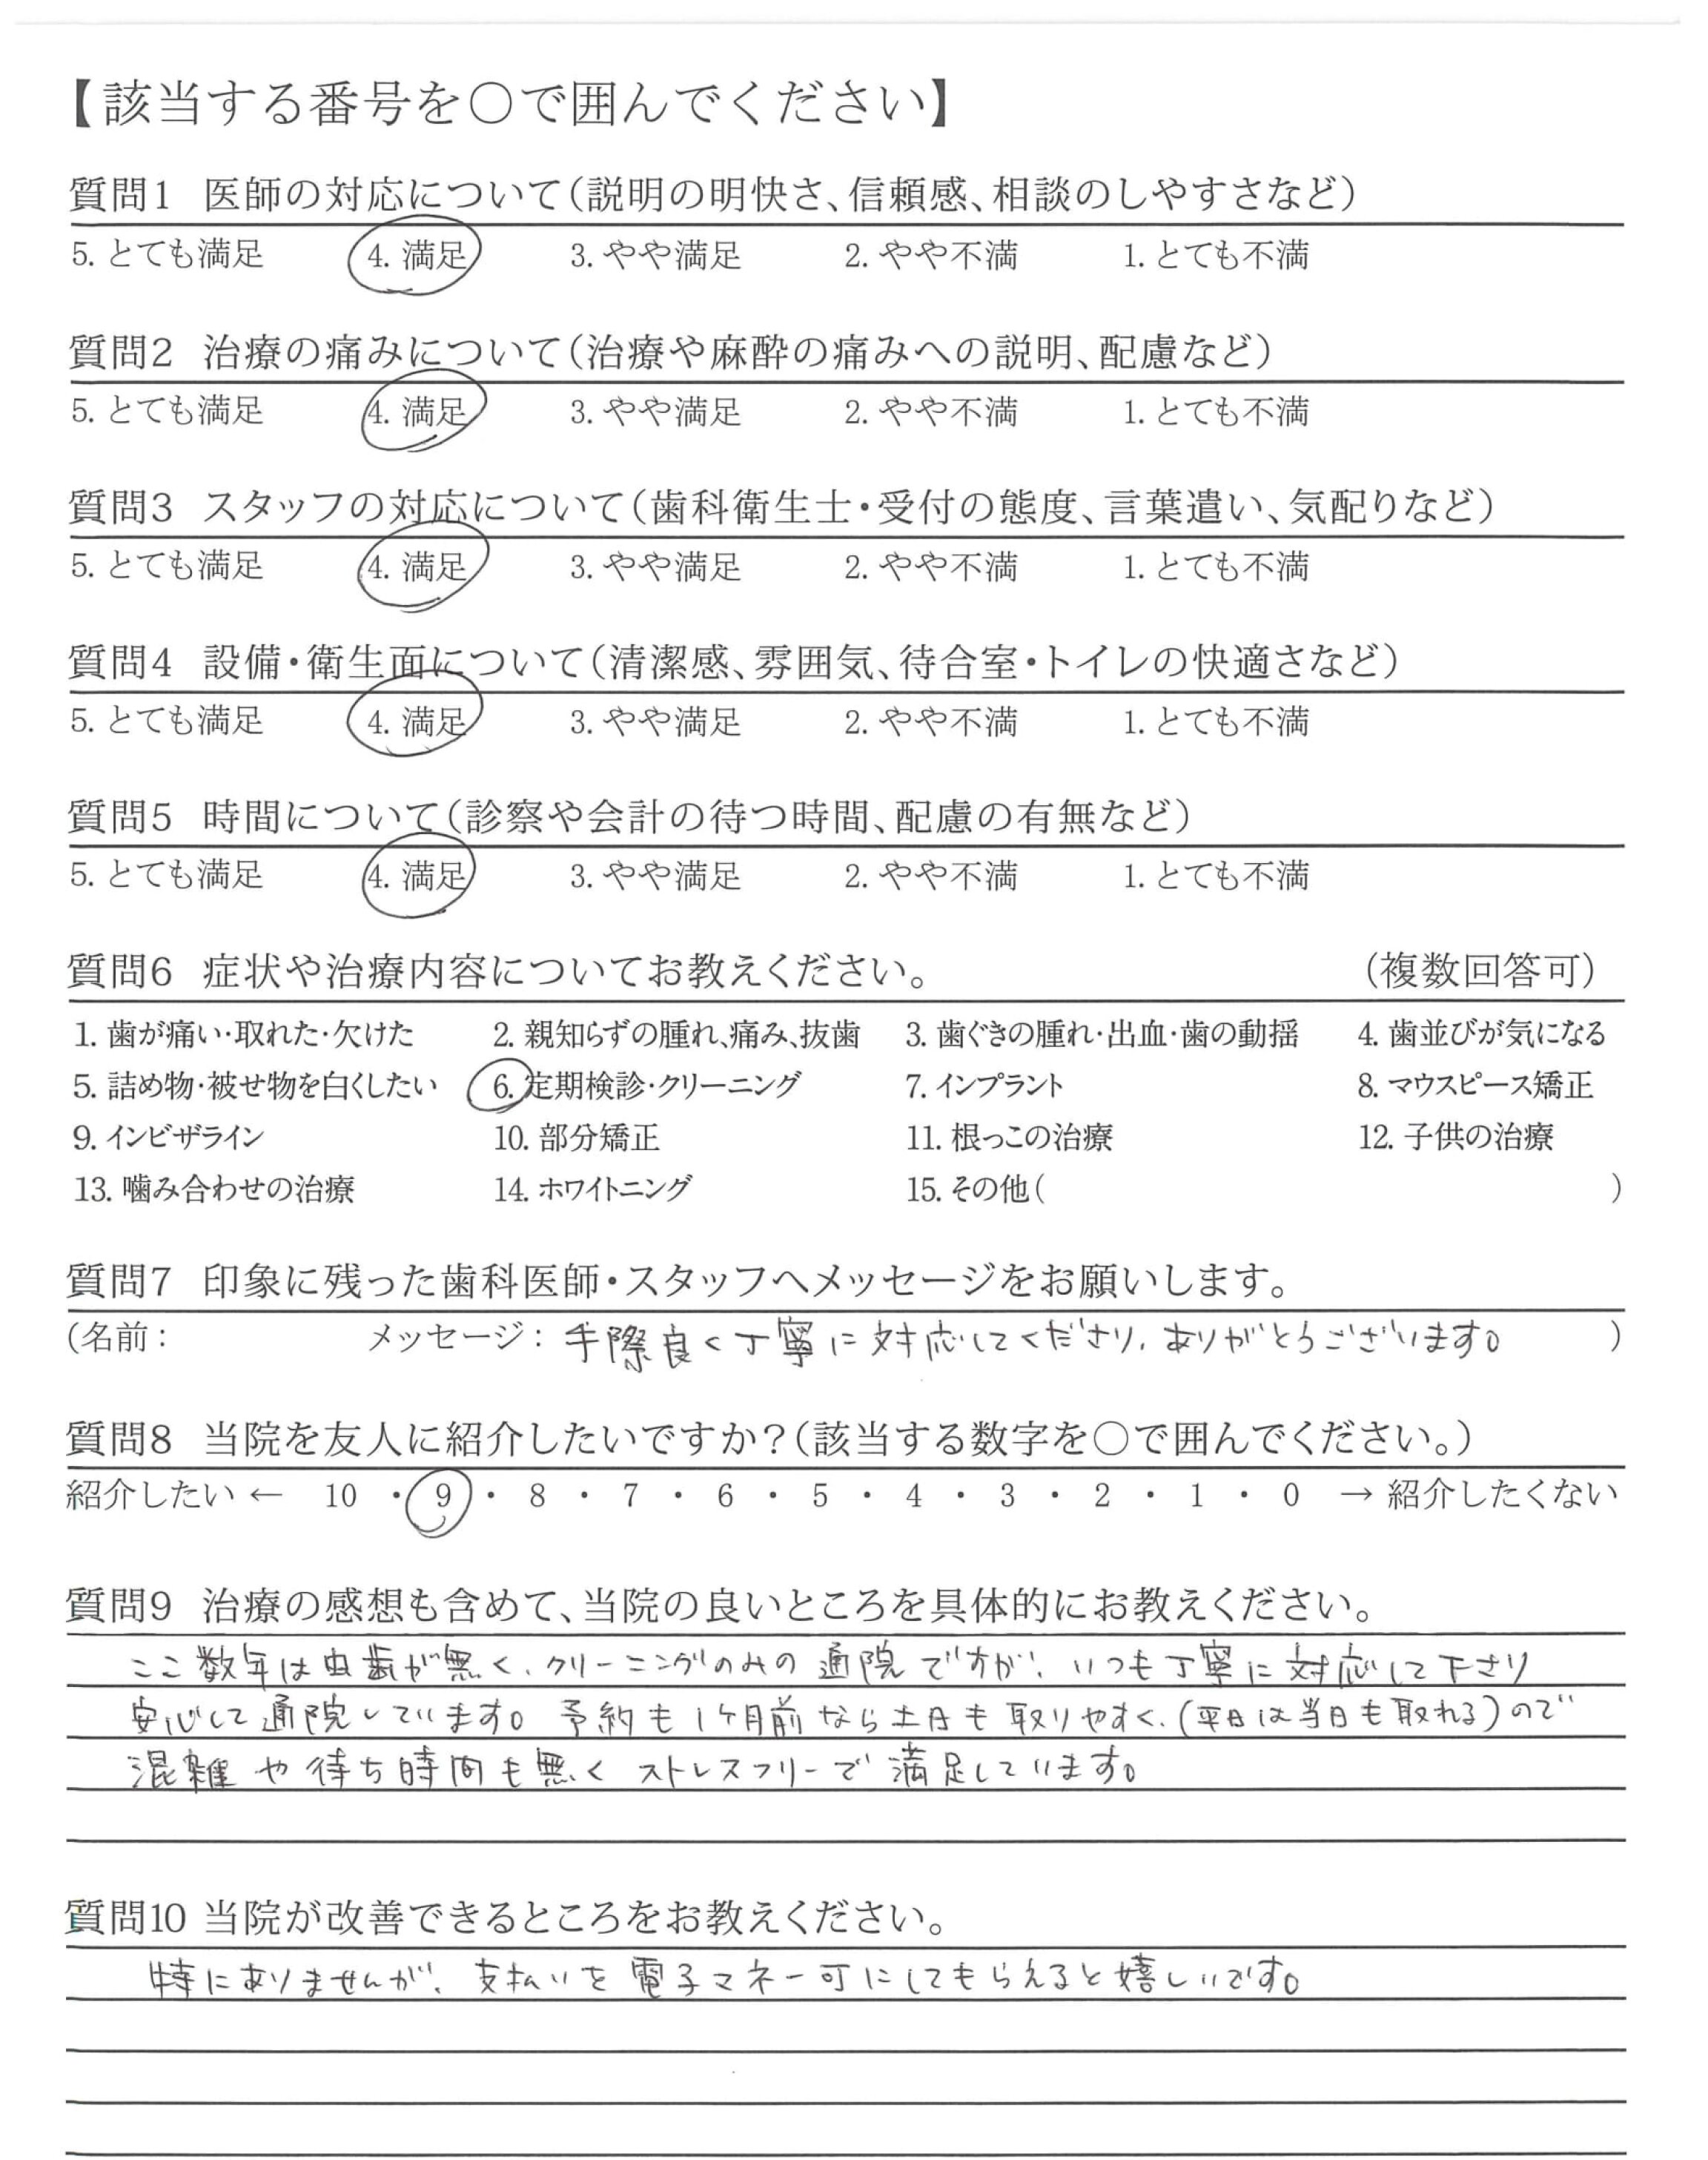 【該当する番号を○で囲んでください】
質問1 医師の対応について(説明の明快さ、信頼感、相談のしやすさなど)
5. とても満足 4. 満足 3. やや満足 2. やや不満 1. とても不満
質問2 治療の痛みについて(治療や麻酔の痛みへの説明、配慮など)
5. とても満足 4. 満足 3. やや満足 2. やや不満 1. とても不満
質問3 スタッフの対応について(歯科衛生士・受付の態度、言葉遣い、気配りなど)
5. とても満足 4. 満足 3. やや満足 2. やや不満 1. とても不満
質問4 設備・衛生面について(清潔感、雰囲気、待合室・トイレの快適さなど)
5. とても満足 4. 満足 3. やや満足 2. やや不満 1. とても不満
質問5 時間について(診察や会計の待つ時間、配慮の有無など)
5. とても満足 4. 満足 3. やや満足 2. やや不満 1. とても不満
質問6 症状や治療内容についてお教えください。 (複数回答可)
1. 歯が痛い・取れた・欠けた 2. 親知らずの腫れ、痛み、抜歯 3. 歯ぐきの腫れ・出血・歯の動揺 4. 歯並びが気になる
5. 詰め物・被せ物を白くしたい 6. 定期検診・クリーニング 7. インプラント 8. マウスピース矯正
9. インビザライン 10. 部分矯正 11. 根っこの治療 12. 子供の治療
13. 噛み合わせの治療 14. ホワイトニング 15. その他( )
質問7 印象に残った歯科医師・スタッフへメッセージをお願いします。
(名前: メッセージ: 手際良く丁寧に対応してくださり、ありがとうございます。 )
質問8 当院を友人に紹介したいですか?(該当する数字を○で囲んでください。)
紹介したい ← 10 ・ 9 ・ 8 ・ 7 ・ 6 ・ 5 ・ 4 ・ 3 ・ 2 ・ 1 ・ 0 → 紹介したくない
質問9 治療の感想も含めて、当院の良いところを具体的にお教えください。
ここ数年は虫歯が無く、クリーニングのみの通院ですが、いつも丁寧に対応して下さり
安心して通院しています。予約も1ヶ月前なら土日も取りやすく、(平日は当日も取れる)ので
混雑や待ち時間も無くストレスフリーで満足しています。
質問10 当院が改善できるところをお教えください。
特にありませんが、支払いを電子マネー可にしてもらえると嬉しいです。